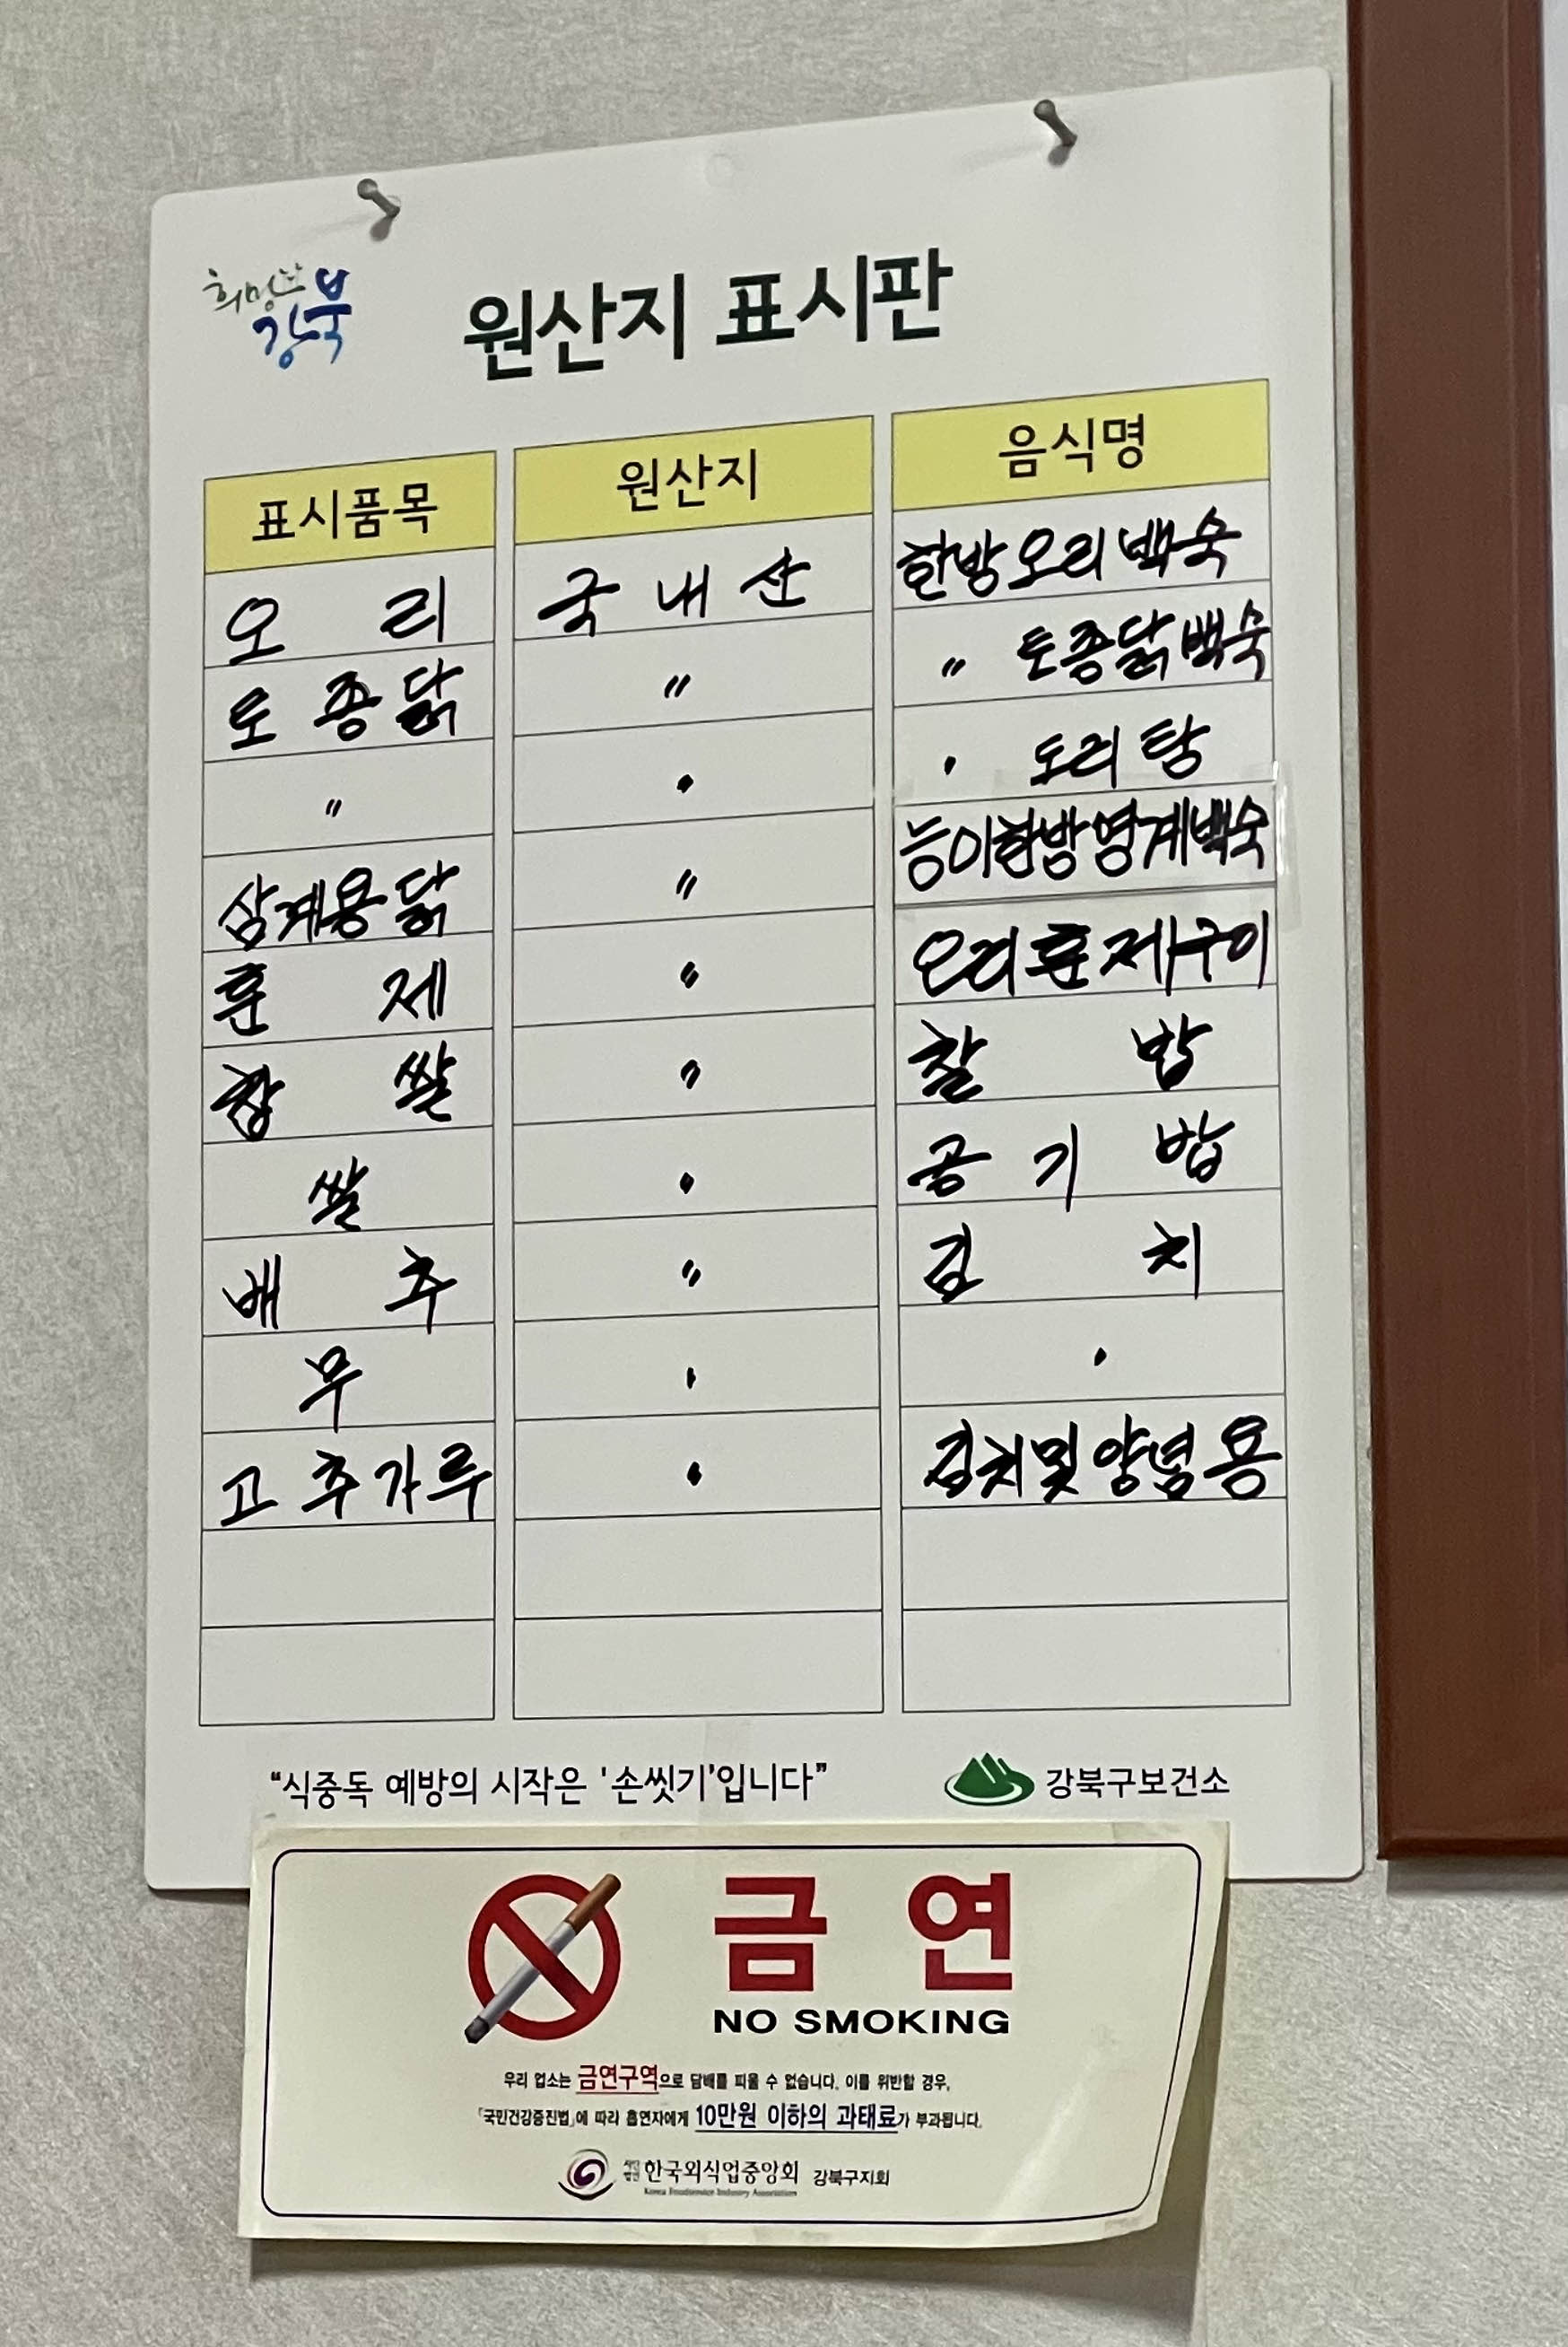 희망찬
강북
원산지 표시판
표시품목 원산지 음식명
오리 국내산 한방오리백숙
토종닭 〃 〃 토종닭백숙
〃 〃 〃 도리탕
삼계용닭 〃 능이한방영계백숙
훈제 〃 오리훈제구이
찹쌀 〃 찰밥
쌀 〃 공기밥
배추 〃 김치
무 〃 〃
고추가루 〃 김치및양념용
“식중독 예방의 시작은 '손씻기'입니다” 강북구보건소
금연
NO SMOKING
우리 업소는 금연구역으로 담배를 피울 수 없습니다. 이를 위반할 경우,
「국민건강증진법」에 따라 흡연자에게 10만원 이하의 과태료가 부과됩니다.
사단법인 한국외식업중앙회 강북구지회
Korea Foodservice Industry Association